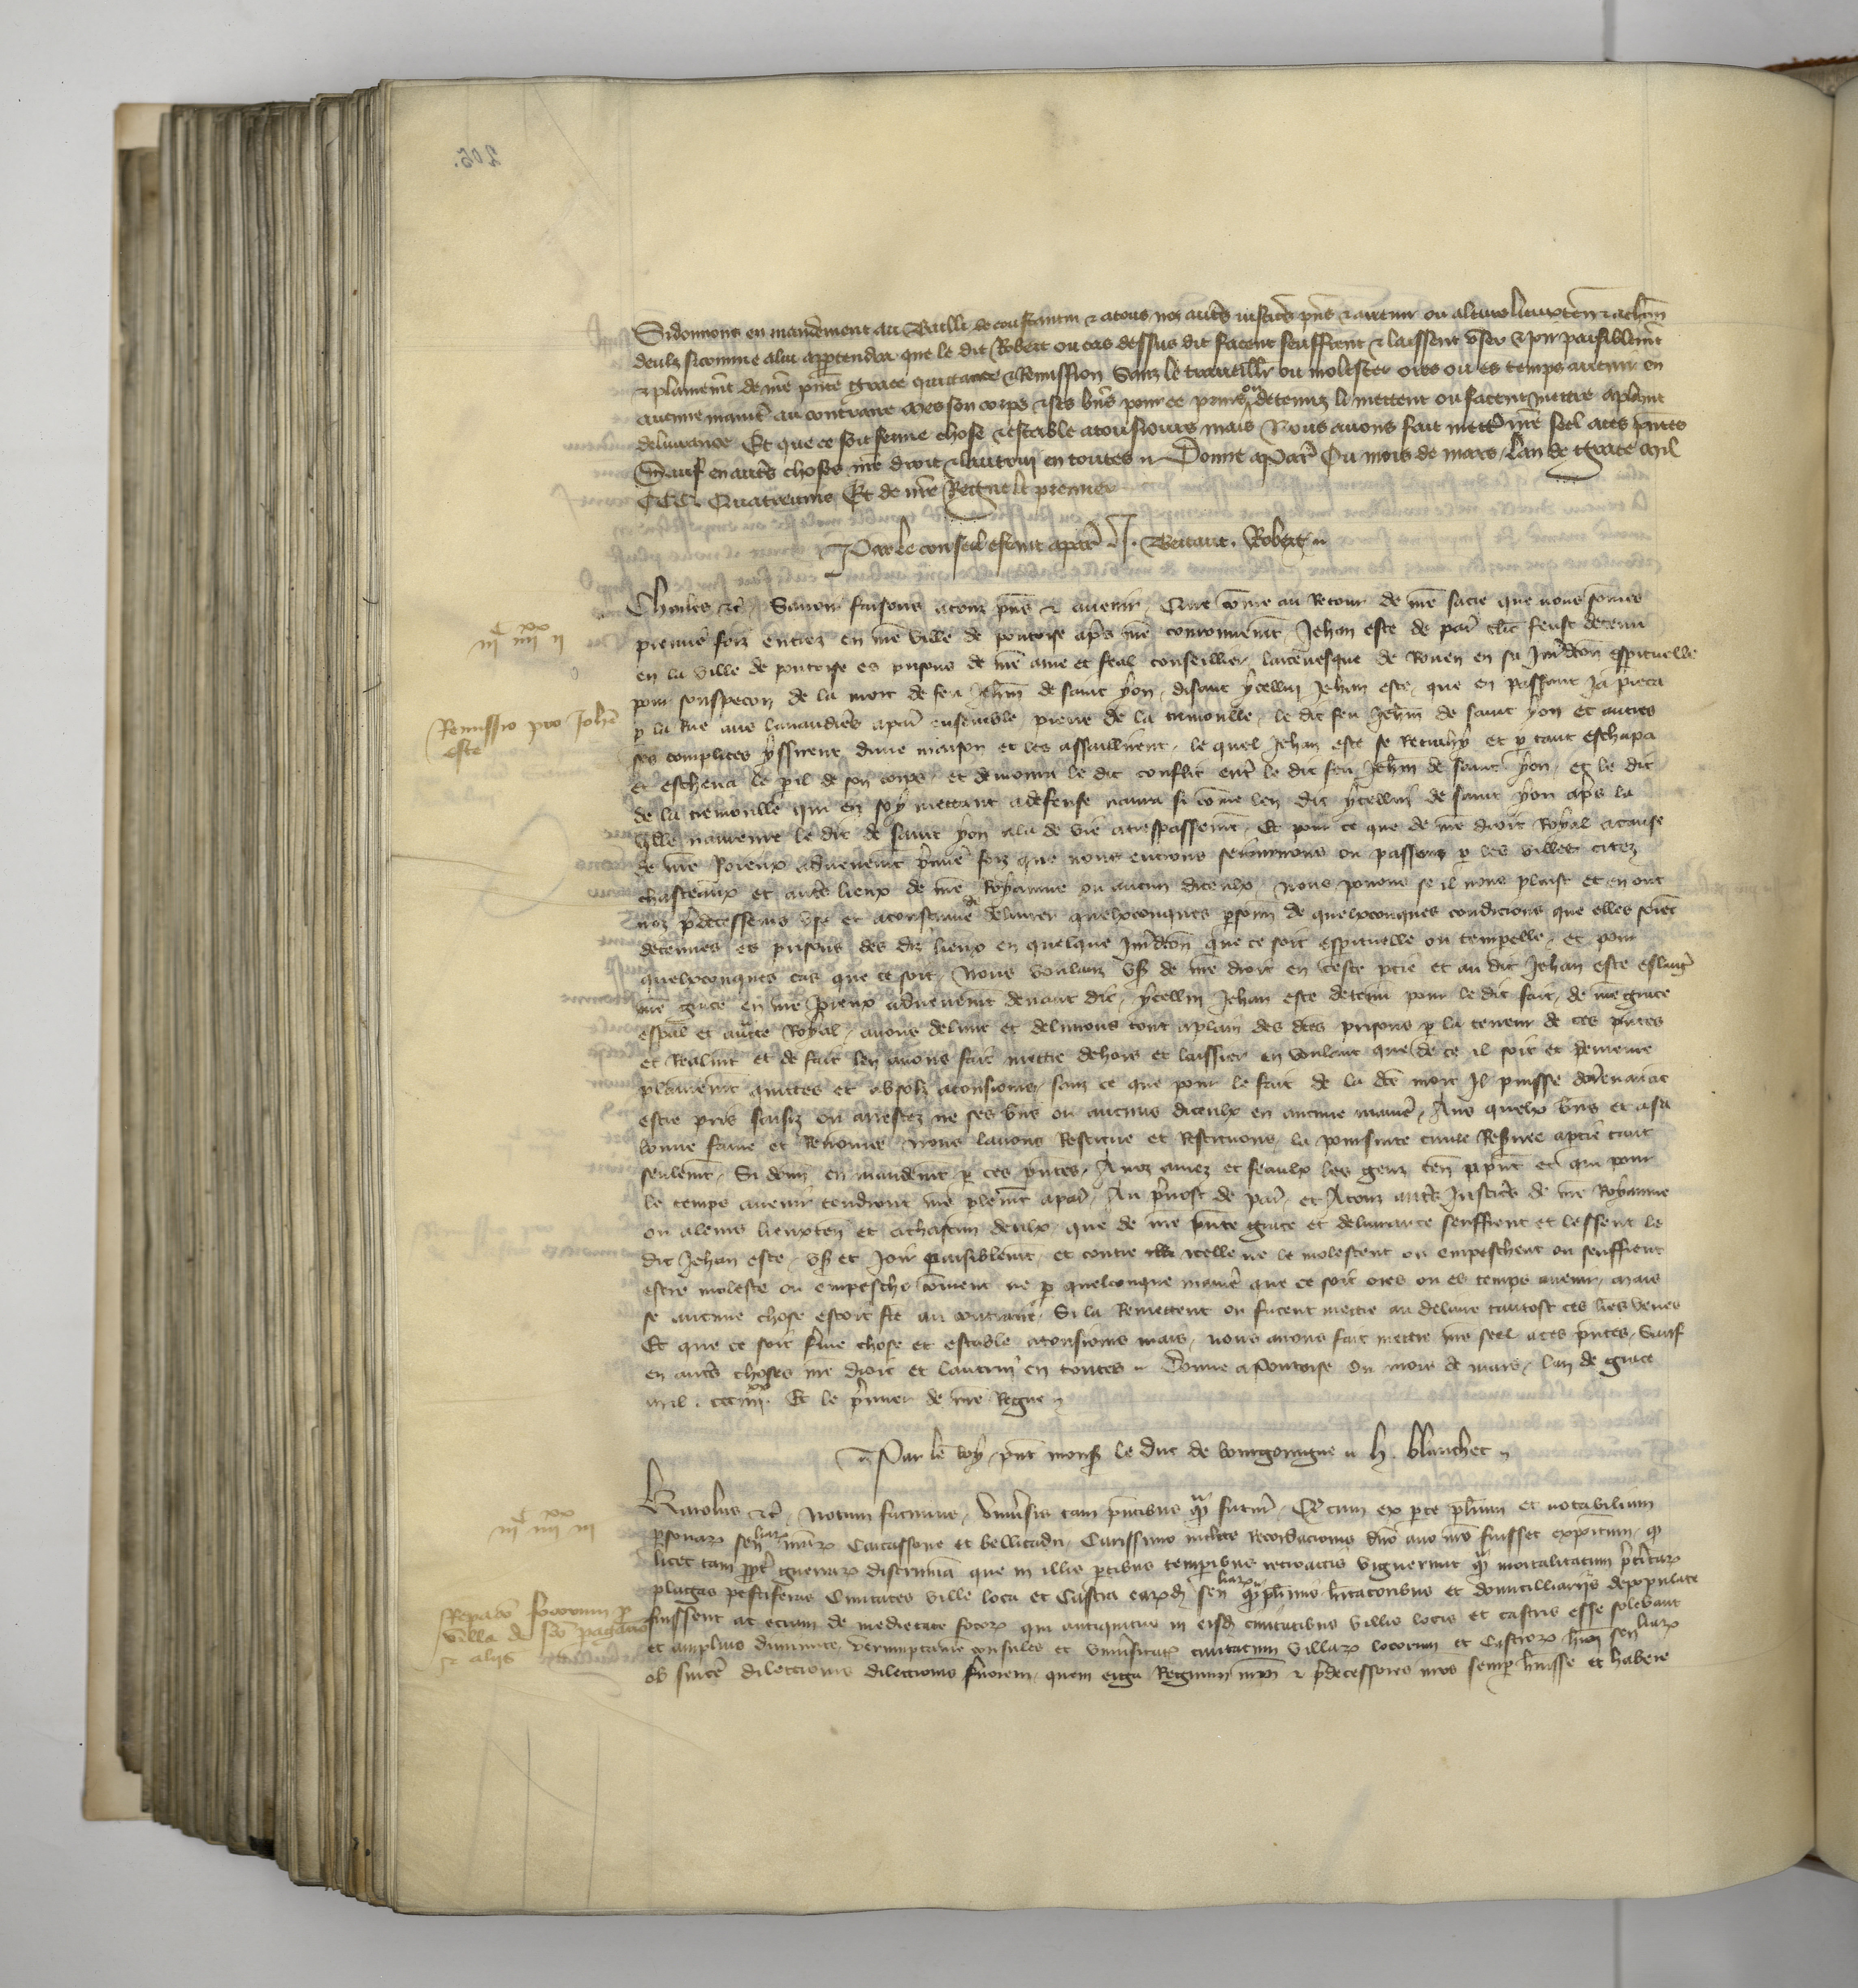 Si donnons en mandement au Bailli de coustantin & a touz noz autrẽs justicẽrs pñs & avenir ou a leurs lieuxteñ & a chũn
deulz si comme a lui appartendra que le dit Robert ou cas dessus dit facent seuffrent & laissent user & joir paisiblemt̃
& plainemt̃ de nrẽ pñte grace quittance & Remission Sanz le travaillier ou molester ores ou es temps avenir en
aucune manierẽ au contraire Mes son corps & ses bñs pour ce prins ou detenuz li mettent ou facent mettre a plainẽ
delivrance Et que ce soit ferme chose & estable a tousjours mais Nous avons fait mettrẽ nrẽ seel a ces pñtes
Sauf en autrẽs choses nrẽ droit & lautrui en toutes Donné a Parĩs Ou mois de mars Lan de grace Mil
CCC Quatrevins Et de nrẽ Regne le premier
Par le conseil estant a parĩs J. Bertaut. Robert
Charles &c̃ Savoir faisons a touz pñs & avenir Que cõme au Retour de nrẽ sacre que nous sõmes
premierẽ foiz entrez en nrẽ ville de pontoise apr̃s nrẽ couronnemt̃ Jehan este de parĩs clẽrc feust detenu
en la ville de pontoise es prisons de nrẽ amé et feal conseillier larcevesque de Rouen en sa Jurĩdicõn espirituelle
pour souspecõn de la mort de feu Jehãn de saint yon, disant ycellui Jehan este, que en passant ja pieca
p la Rue aus lavandierẽs a parĩs ensemble pierre de la tremoulle, le dit feu Jehãn de saint yon et autres
ses complices yssirent dune maison et les assaillirent, le quel Jehan este se Retrahy et p tant eschapa
et escheva le pil de son corps, et demoura le dit conflit entrẽ le dit feu Jehãn de saint yon, et le dit
de la tremoulle qui en soy mettant a defense navra si cõme len dit ycellui de saint yon apr̃s la
qlle navreure le dit de saint yon ala de vie a trespassemt̃, Et pour ce que de nrẽ droit Royal a cause
de nrẽ Joieux advenemt̃ premierẽ foiz que nous entrons sejournons ou passons p les villes citez
chasteaux et autrẽs lieux de nrẽ Royaume ou aucun diceulx Nous povons se il nous plaist et en ont
noz pr̃decesseurs usé et acoustumé de delivrer quelxconques psonñ de quelxconques condicions que elles soient
detenues es prisons des diz lieux en quelque Jurĩdicõn que ce soit espirituelle ou tempelle, et pour
quelxconques cas que ce soit, Nous voulanz usr̃ de nrẽ droit en ceste ptie et au dit Jehan este eslargĩr
nrẽ grace en nrẽ Joieux advenemt̃ devant dit, ycellui Jehan este detenu pour le dit fait, de nrẽ grace
espal̃ et auctẽ Royal, avons delivré et delivrons tout a plain des dt̃es prisons p la teneur de ces pñtes
et Realmt̃ et de fait len avons fait mettre dehors et laissier en voulant que de ce il soit et demeure
plainemt̃ quittes et absolz a tousjours, sanz ce que pour le fait de la dt̃e mort Il puisse dorenavant
estre pris saisiz ou arrestez ne ses bñs ou aucuns diceulx en aucune manierẽ, Aus quelx bñs et a sa
bonne fame et Renomee Nous lavons Restitué et Restituons, la poursuite civile Reservee a ptie tant
seulemt̃, Si donñ en mandemt̃ p ces pñtes, A noz amez et feaulx les genz teñ a pñt et qui pour
le temps avenir tendront nrẽ plemt̃ a parĩs, Au prẽvost de parĩs, et A touz autrẽs Justicẽrs de nrẽ Royaume
ou a leurs lieuxteñ et a chascun deulx, que de nrẽ pñte grace et delivrance seuffrent et lessent le
dit Jehan este, usr̃ et Joir paisiblemt̃, et contre icelle ne le molestent ou empeschent ou seuffrent
estre molesté ou empesché cõment ne p quelconque manierẽ que ce soit ores ou es temps avenir, mais
se aucune chose estoit fte au contraire, Si la Remettent ou facent mettre au delivre tantost ces lrẽs veues
Et que ce soit fermẽ chose et estable a tousjours mais, nous avons fait mettre nrẽ seel a ces pñtes, Sauf
en autrẽs choses nrẽ droit et lautrui en toutes Donné a Pontoise Ou mois de mars, lan de grace
mil. ccc iiii xx. Et le premier de nrẽ Regne
Par le Roy, pñt monsr̃ le duc de bourgoingne h. blanchet
Karolus &c̃, Notum facimus, Universis tam pñtibus qm̃ futurĩs, Qd cum ex pte plĩum et notabilium
psonarũ senliarũ nrãrũ Carcassone et bellicadri, Carissimo inclite Recordacionis dño avo nrõ fuisset expõitum, qd
licet tam propt̃ guerrarũ discrimina que in illis ptibus tempibus retroactis viguerunt qm̃ mortalitatum prẽteritarũ
plagas pestiferas Civitates ville loca et Castra earũdem senliarũ qm̃plurimis habitatoribus et domicilliariis depopulate
fuissent ac eciam de medietate focorũ qui antiquitus in eisdem civitatibus villis locis et castris esse solebant
et amplius diminute, verumptamen consules et universitates civitatum villarũ locorum et Castrorũ hujusmodi senliarũ
ob sincerẽ dilectionis dilectionis fervorem, quem erga Regnum nrũm & prẽdecessores nrõs semper hũisse et habere
iii c iiii xx ii
Remissio pro Johẽ
este
iii c iiii xx iii
Repacõ focorum p
villa de scõ paganõ
& aliis
205.